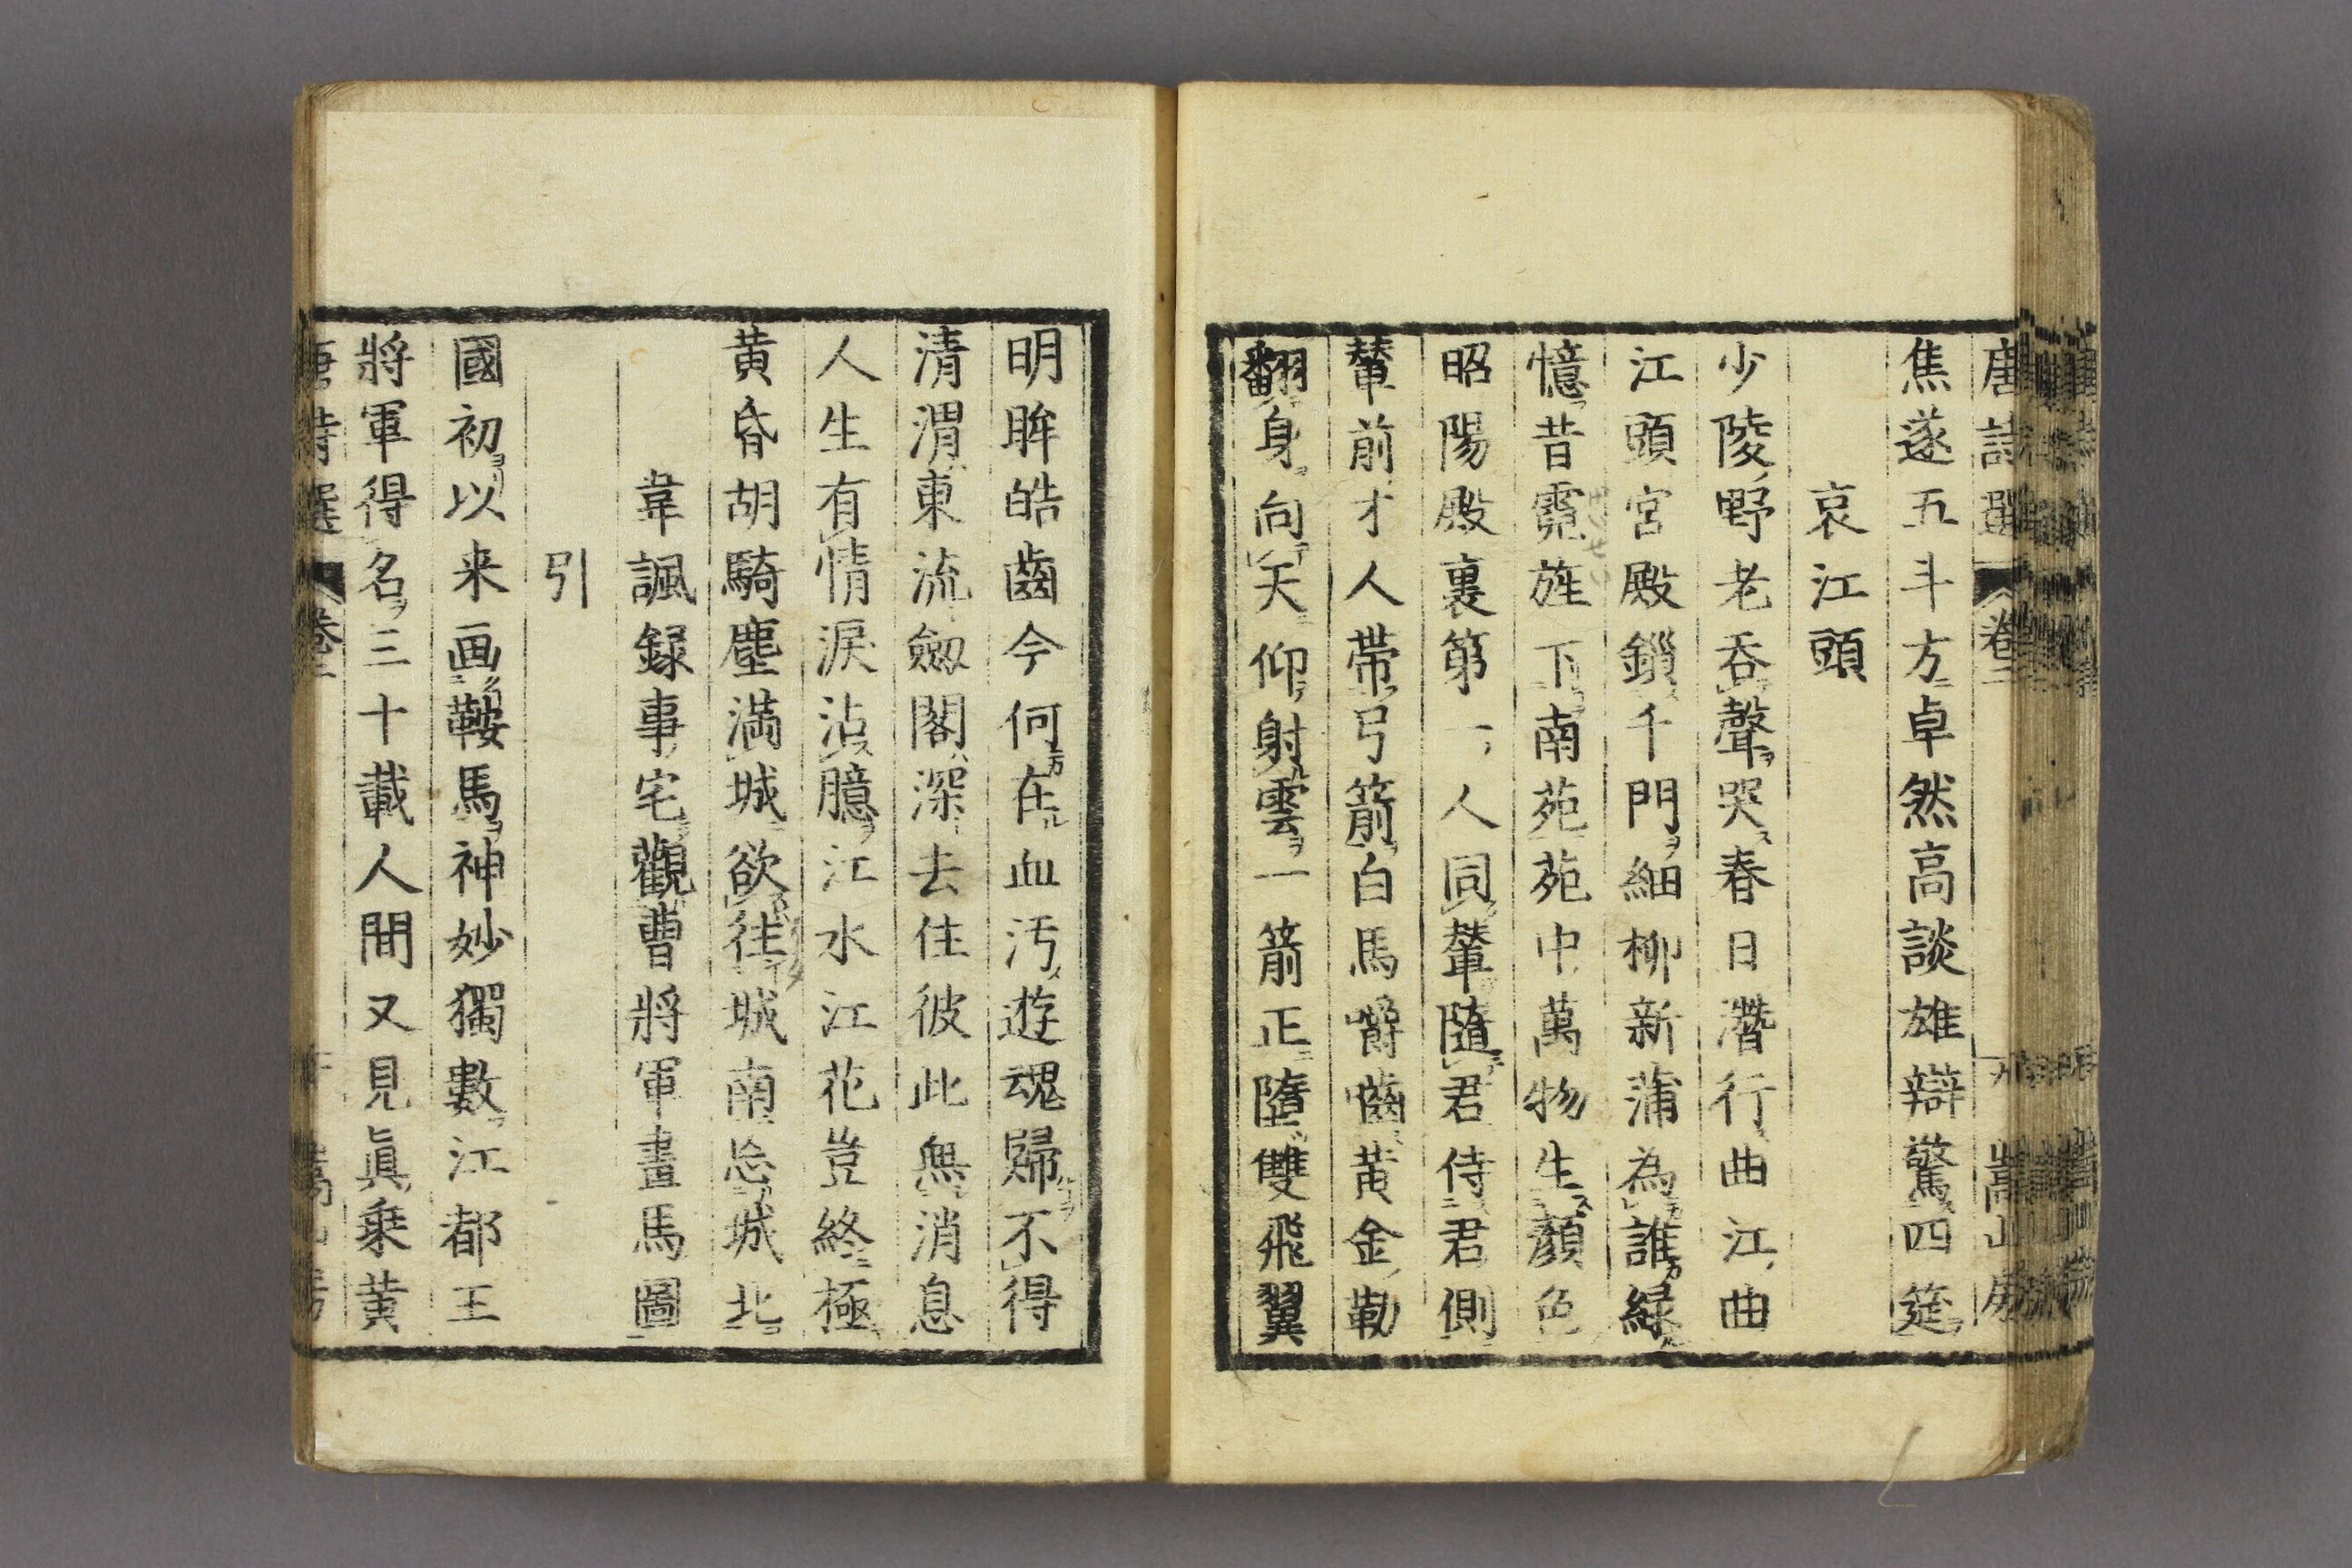 唐詩選 卷二 嵩山房
焦遂五斗方卓然高談雄辯驚四筵
哀江頭
少陵野老吞聲哭春日潛行曲江曲
江頭宮殿鎖千門細柳新蒲為誰緑
憶昔霓旌下南苑苑中萬物生顏色
昭陽殿裏第一人同輦隨君侍君側
輦前才人帶弓箭白馬嚼嚙黄金勒
翻身向天仰射雲一箭正墮雙飛翼
明眸皓齒今何在血汚遊魂歸不得
清渭東流劔閣深去住彼此無消息
人生有情淚沾臆江水江花豈終極
黄昏胡騎塵滿城欲往城南忘城北
韋諷録事宅觀曹將軍畫馬圖
引
國初以来画鞍馬神妙獨數江都王
將軍得名三十載人間又見眞乗黄
唐詩選 卷二